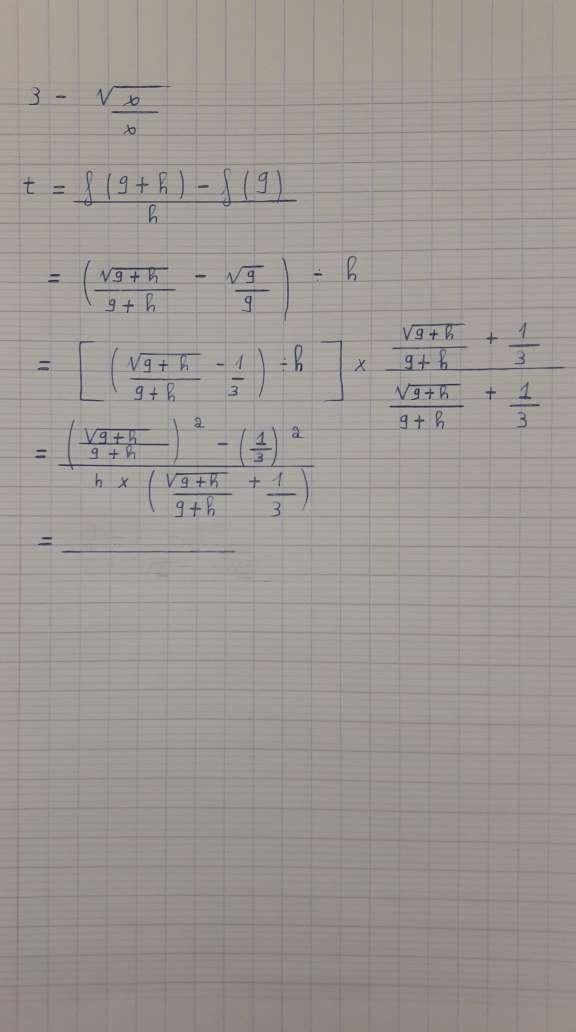 3 - √x/x
t = f(9+h) - f(9) / h
= (√9+h / 9+h - √9 / 9) ÷ h
= [(√9+h / 9+h - 1/3) ÷ h] x (√9+h / 9+h + 1/3) / (√9+h / 9+h + 1/3)
= (√9+h / 9+h)² - (1/3)² / h x (√9+h / 9+h + 1/3)
=